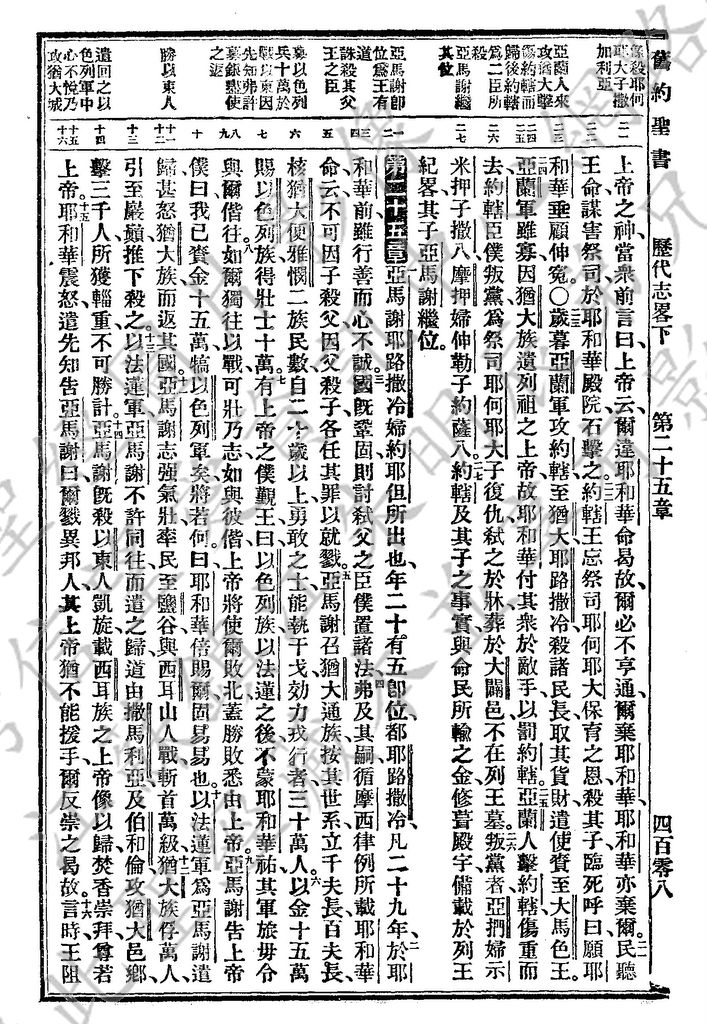 舊約聖書
歷代志畧下
第二十五章
四百零八
弒殺耶何耶大子撒加利亞
亞蘭人來攻猶大擊傷約轄而歸後約轄爲二臣所殺
亞馬謝繼其位
亞馬謝卽位爲王有道
誅殺其父王之臣
募以色列兵十萬於戰以東因先知弗許募銀盡使之返
勝以東人
遣回之以色列軍中心不悅乃攻猶大城
上帝之神當衆前言曰上帝云爾違耶和華命曷故爾必不亨通爾棄耶和華耶和華亦棄爾民聽
王命謀害祭司於耶和華殿院石擊之約轄王忘祭司耶何耶大保育之恩殺其子臨死呼曰願耶
和華垂顧伸寃〇歲暮亞蘭軍攻約轄至猶大耶路撒冷殺諸民長取其貨財遣使賫至大馬色王
亞蘭軍雖寡因猶大族遺列祖之上帝故耶和華付其衆於敵手以罰約轄亞蘭人擊約轄傷重而
去約轄臣僕叛黨爲祭司耶何耶大子復仇弒之於牀葬於大闢邑不在列王墓叛黨者亞押婦示
米押子撒八摩押婦伸勒子約薩八約轄及其子之事實與命民所輸之金修葺殿宇備載於列王
紀畧其子亞馬謝繼位
第二十五章亞馬謝耶路撒冷婦約耶但所出也年二十有五卽位都耶路撒冷凡二十九年於耶
和華前雖行善而心不誠國旣鞏固則討弒父之臣僕置諸法弗及其嗣循摩西律例所載耶和華
命云不可因子殺父因父殺子各任其罪以就戮亞馬謝召猶大通族按其世系立千夫長百夫長
核猶大便雅憫二族民數自二十歲以上勇敢之士能執干戈効力戎行者三十萬人以金十五萬
賜以色列族得壯士十萬有上帝之僕覲王曰以色列族以法蓮之後不蒙耶和華祐其軍旅毋令
與爾偕往如爾獨往以戰可壯乃志如與彼偕上帝將使爾敗北蓋勝敗悉由上帝亞馬謝告上帝
僕曰我已賫金十五萬犒以色列軍矣將若何曰耶和華倍賜爾固易易也以法蓮軍爲亞馬謝遣
歸甚怒猶大族而返其國亞馬謝志強氣壯率民至鹽谷與西耳山人戰斬首萬級猶大族俘萬人
引至巖巓推下殺之以法蓮軍亞馬謝不許同往而遣之歸道由撒馬利亞及伯和倫攻猶大邑鄉
擊三千人所獲輜重不可勝計亞馬謝旣殺以東人凱旋載西耳族之上帝像以歸焚香崇拜尊若
上帝耶和華震怒遣先知告亞馬謝曰爾戮異邦人其上帝猶不能援手爾反崇之曷故言時王阻